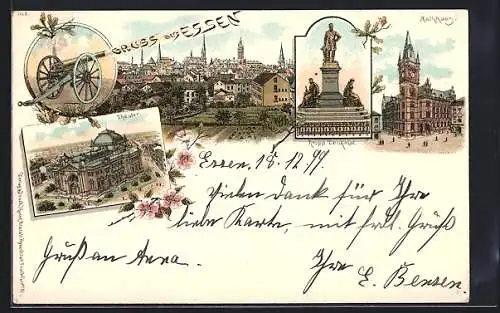 GRUSS aus ESSEN
Rathhaus.
Theater.
Krupp Denkmal
Essen, 15.12.99
Vielen Dank für Ihre
liebe Karte, mit frdl. Gruß
Gruß an Anna.
Ihre E. Bensen.